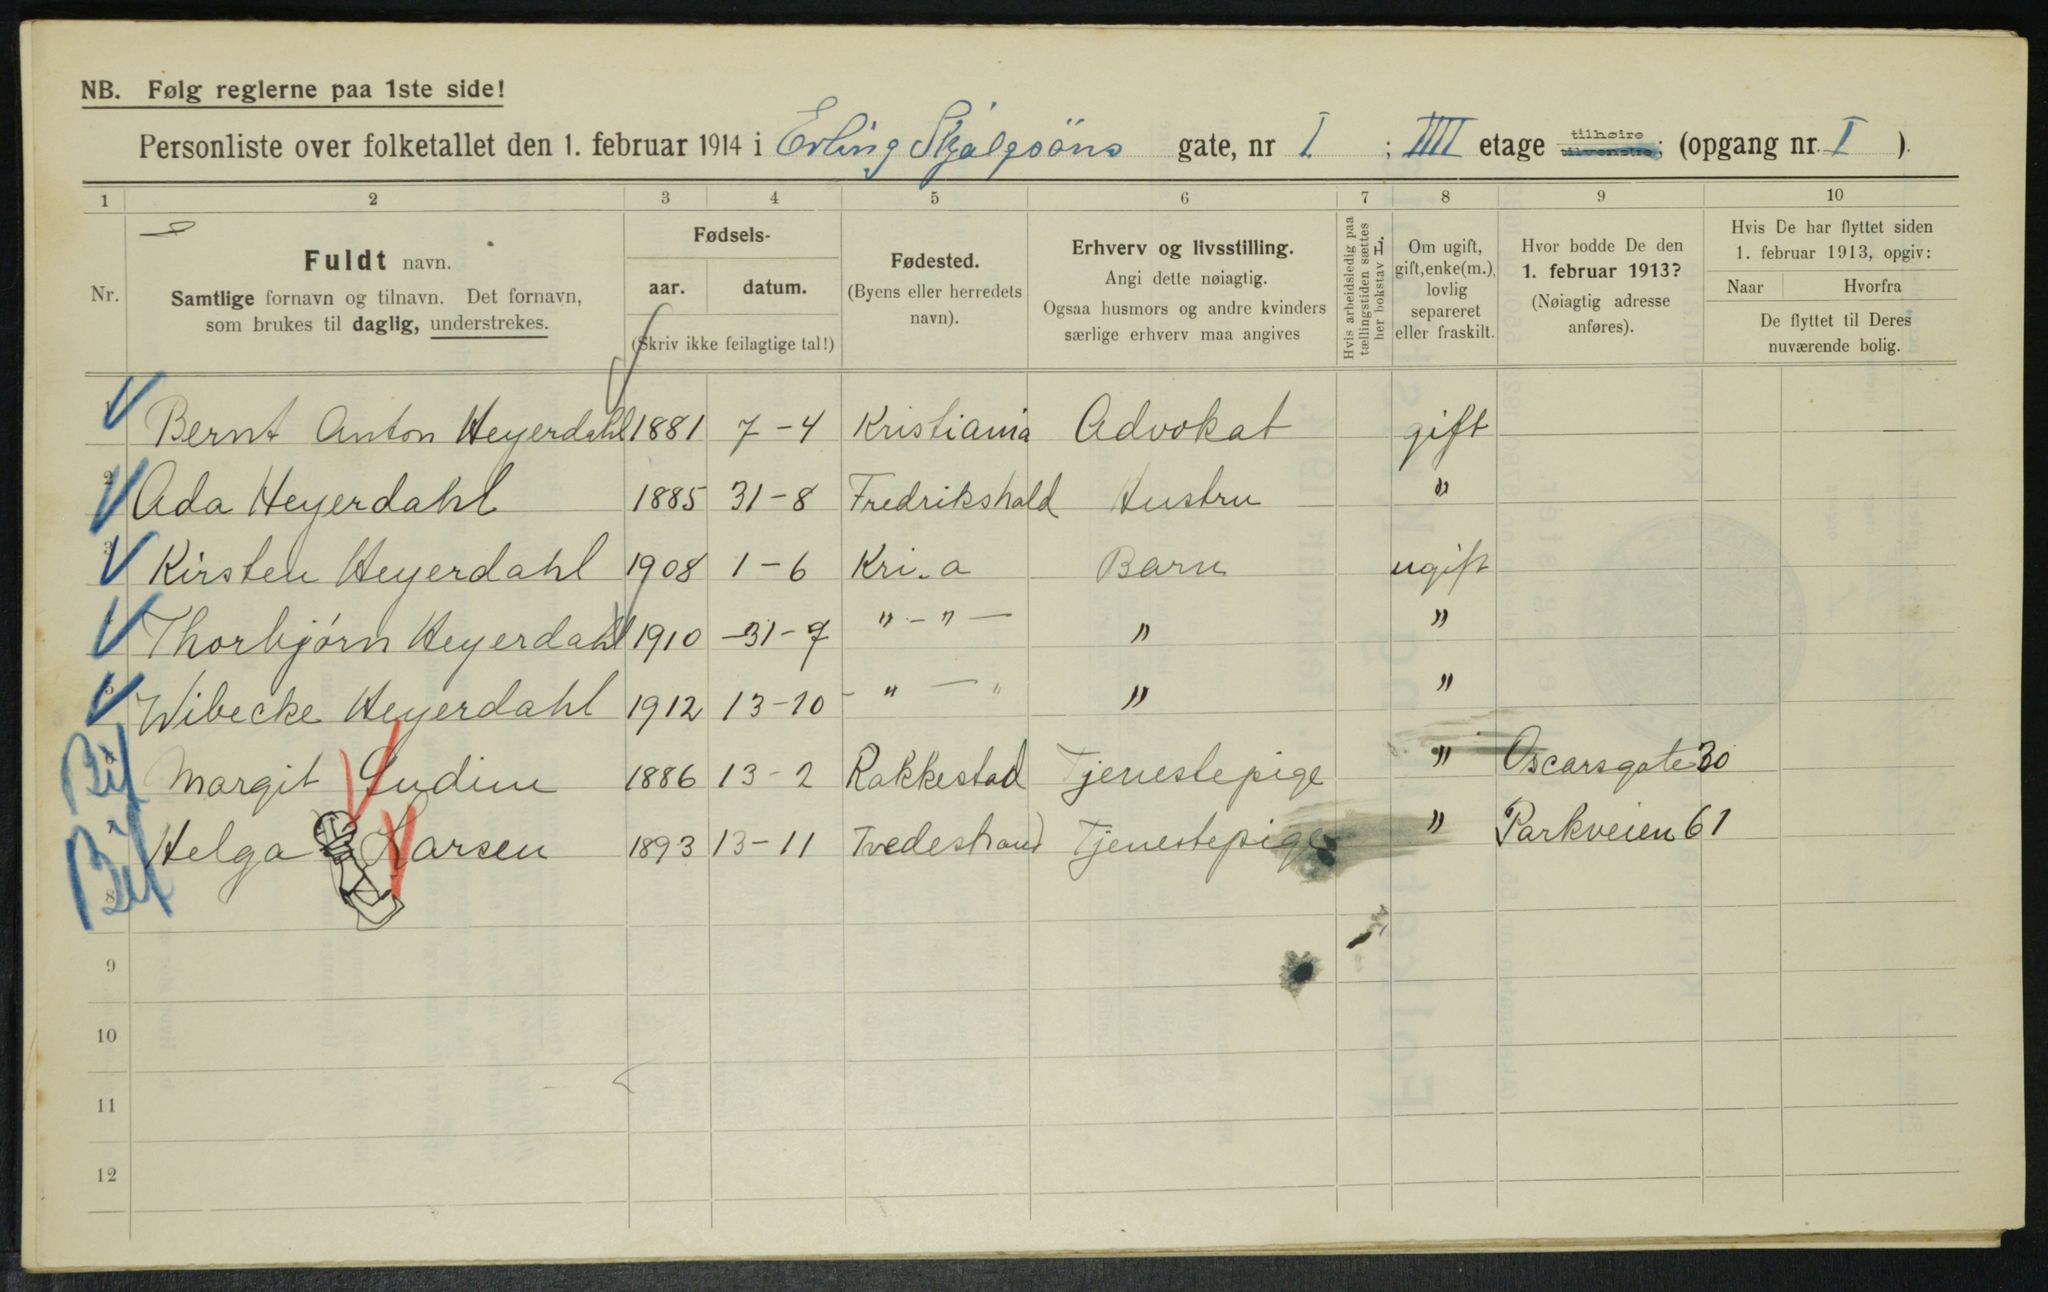 NB. Følg reglerne paa 1ste side!
Personliste over folketallet den 1. februar 1914 i Erling Skjalgsöns gate, nr I ; IIII etage tilhøire tilvenstre; (opgang nr. I ).
1 2 3 4 5 6 7 8 9 10
Nr.
Fuldt navn.
Samtlige fornavn og tilnavn. Det fornavn,
som brukes til daglig, understrekes.
Fødsels-
aar. datum.
(Skriv ikke feilagtige tal!)
Fødested.
(Byens eller herredets
navn).
Erhverv og livsstilling.
Angi dette nøiagtig.
Ogsaa husmors og andre kvinders
særlige erhverv maa angives
Hvis arbeidsledig paa
tællingstiden sættes
her bokstav L.
Om ugift,
gift, enke(m.),
lovlig
separeret
eller fraskilt.
Hvor bodde De den
1. februar 1913?
(Nøiagtig adresse
anføres).
Hvis De har flyttet siden
1. februar 1913, opgiv:
Naar Hvorfra
De flyttet til Deres
nuværende bolig.
Bernt Anton Heyerdahl 1881 7-4 Kristiania Advokat gift
2 Ada Heyerdahl 1885 31-8 Fredrikshald Hustru "
3 Kirsten Heyerdahl 1908 1-6 Kri.a Barn ugift
Thorbjørn Heyerdahl 1910 -31-7 "-"- " "
5 Wibecke Heyerdahl 1912 13-10 - " - " " "
Bif Margit Lundim 1886 13-2 Rakkestad Tjenestepige " Oscarsgate 30
Bif Helga Larsen 1893 13-11 Tvedestrand Tjenestepige " Parkveien 61
8
9
10
11
12